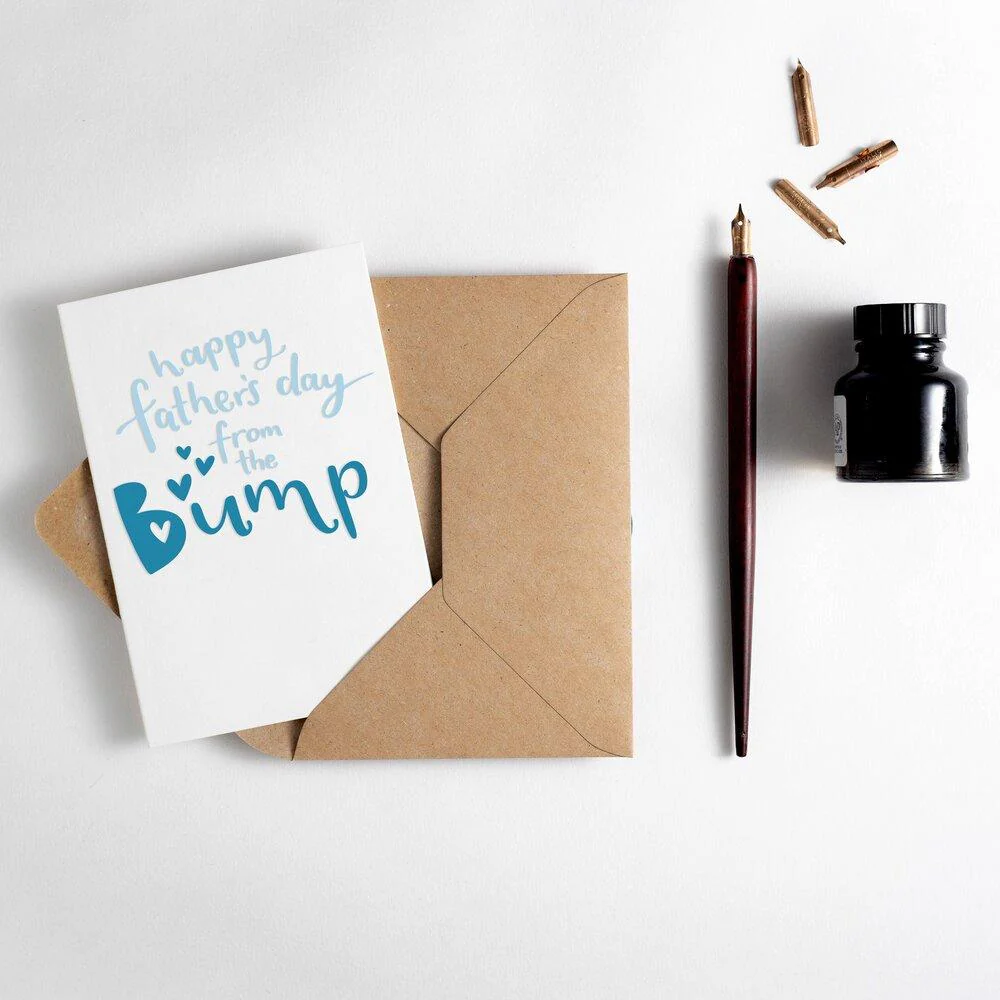 happy
father's day
from
the
Bump